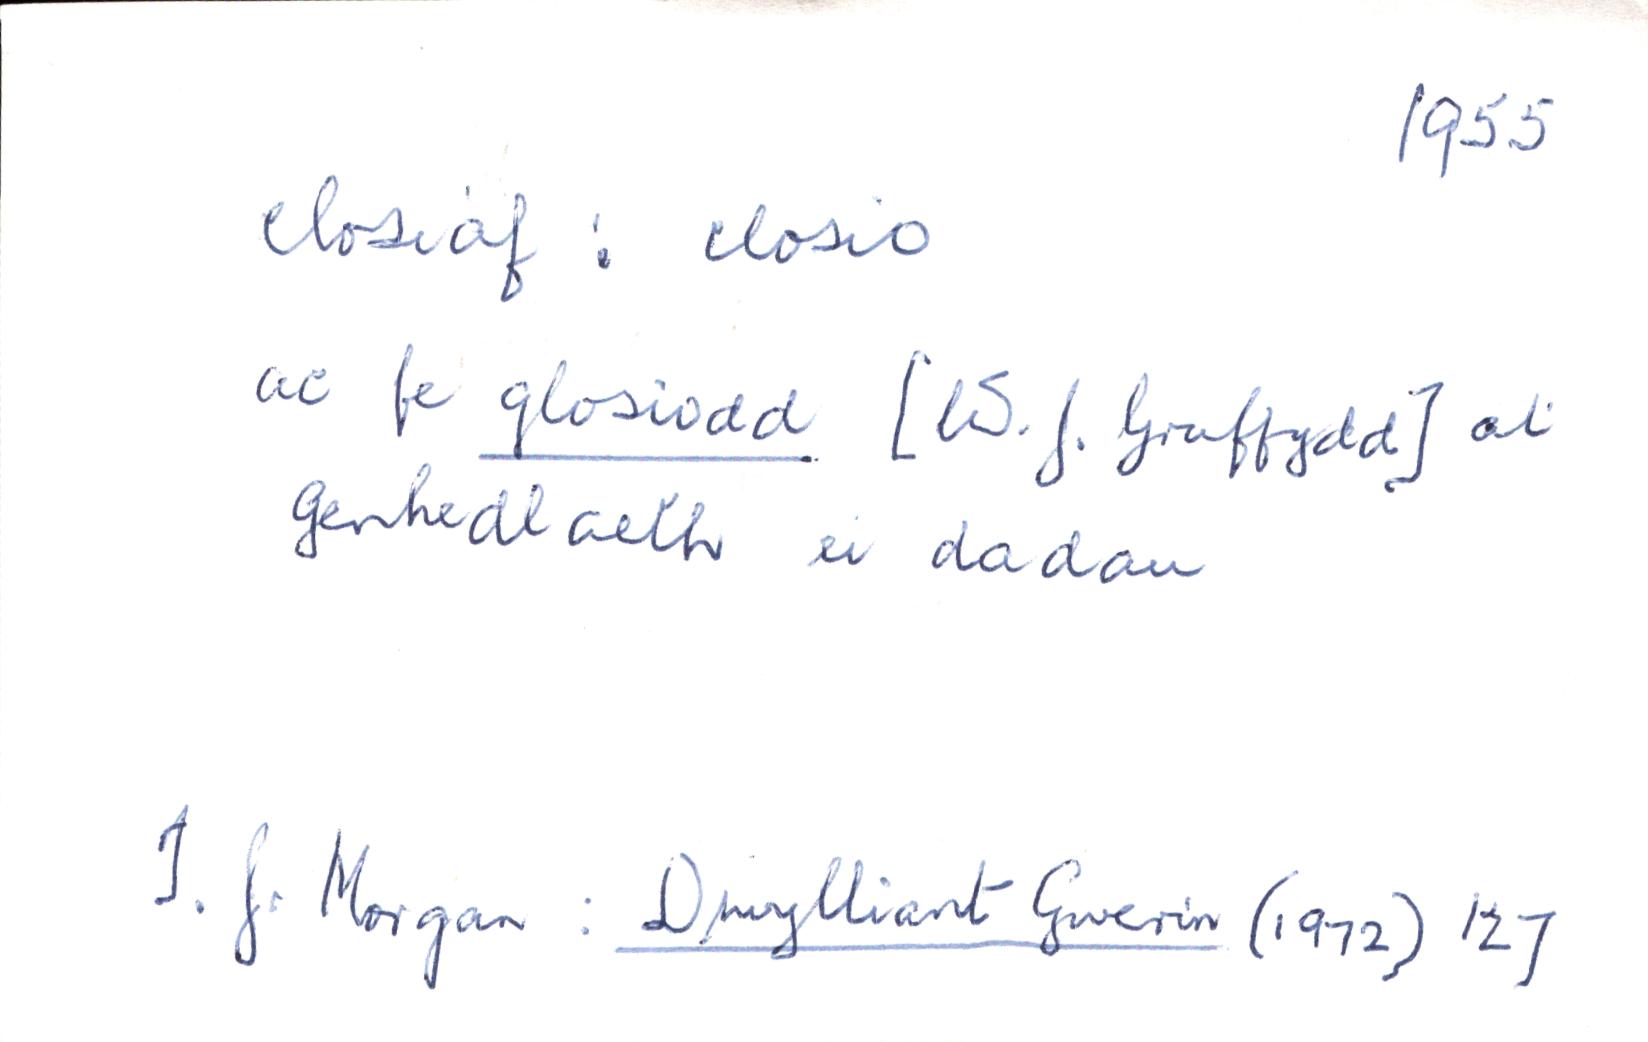 1955
closiaf : closio
ac fe glosiodd [W. J. Gruffydd] at
genhedlaeth ei dadau
T. J. Morgan : Diwylliant Gwerin (1972) 127